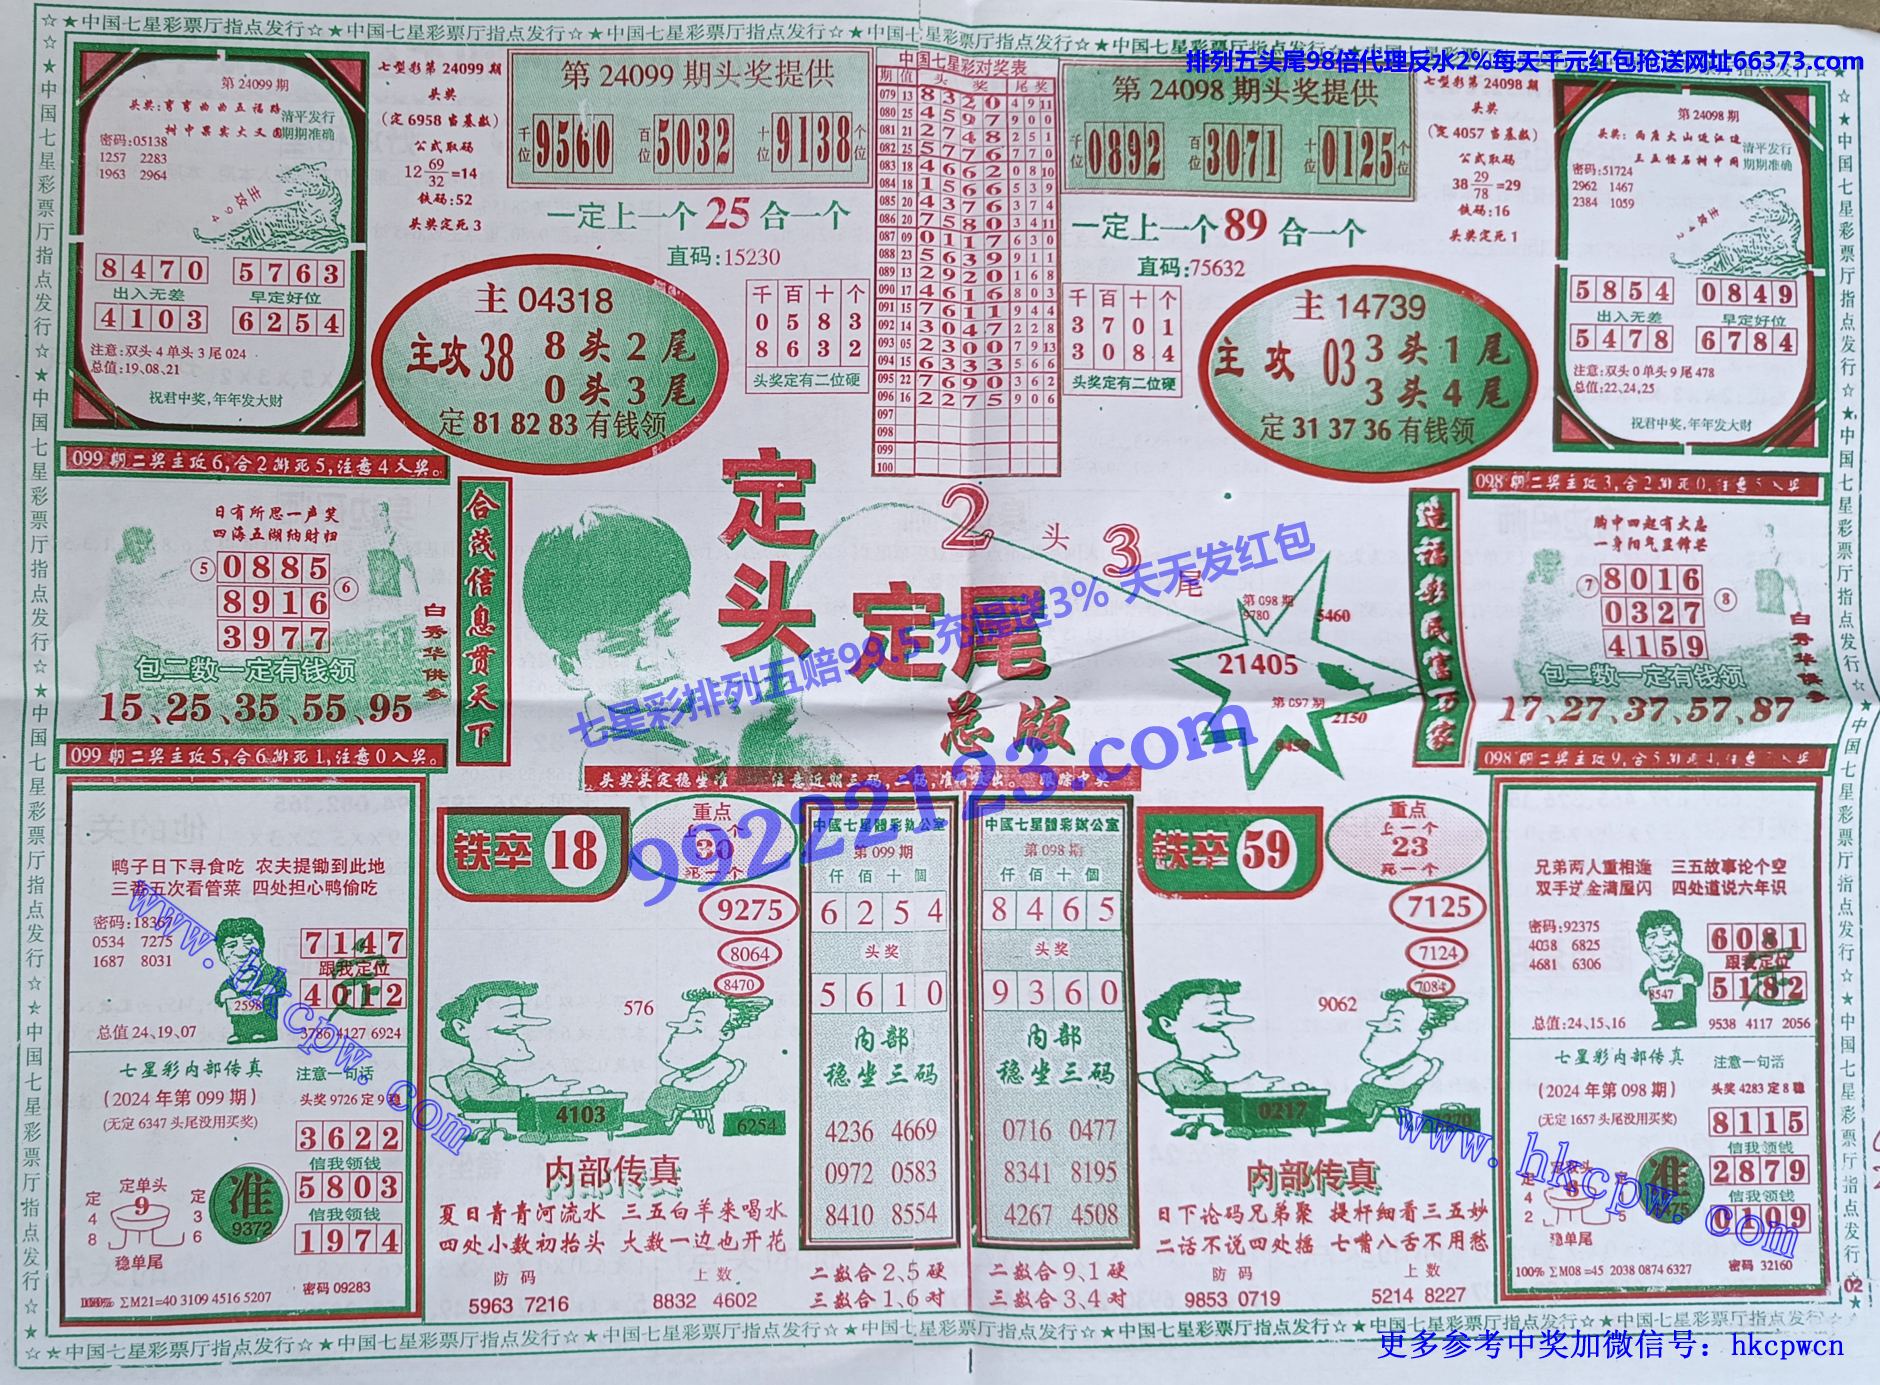 ☆★中国七星彩票厅指点发行☆★中国七星彩票厅指点发行☆★中国七星彩票厅指点发行☆★中国七星彩票厅指点发行☆★中国七星彩票厅指点发行☆★
排列五头尾98倍代理反水2%每天千元红包抢送网址66373.com
第24099期
头奖:弯弯曲曲五福路
树中果实大又圆
清平发行
期期准确
密码:05138
1257 2283
1963 2964
主攻94
8470 5763
出入无差 早定好位
4103 6254
注意:双头4单头3尾024
总值:19,08,21
祝君中奖,年年发大财
七型彩第24099期
头奖
(定6958当基数)
公式取码
12 69/32 =14
铁码:52
头奖定死3
第24099期头奖提供
千位 9560 百位 5032 十位 9138 个位
一定上一个25合一个
直码:15230
主04318
主攻38 8头2尾
0头3尾
定818283有钱领
千百十个
0583
8632
头奖定有二位硬
中国七星彩对奖表
期 值 头奖 尾奖
079 13 8320 4 9 11
080 25 4597 9 0 0
081 21 2748 2 5 1
082 25 5776 7 7 0
083 18 4662 0 8 10
084 18 1566 5 3 9
085 20 4376 3 7 4
086 20 7580 3 4 11
087 09 0117 6 3 0
088 23 5639 9 1 1
089 13 2920 1 6 8
090 17 4616 8 0 3
091 15 7611 9 4 4
092 14 3047 2 2 8
093 05 2300 7 9 13
094 15 6333 5 6 6
095 22 7690 3 6 2
096 16 2275 9 0 6
097
098
099
100
第24098期头奖提供
千位 0892 百位 3071 十位 0125 个位
一定上一个89合一个
直码:75632
千百十个
3701
3084
头奖定有二位硬
主14739
主攻03 3头1尾
3头4尾
定313736有钱领
七型彩第24098期
头奖
(定4057当基数)
公式取码
38 29/78 =29
铁码:16
头奖定死1
第24098期
头奖:两座大山近江边
三五怪石树中间
清平发行
期期准确
密码:51724
2962 1467
2384 1059
5854 0849
出入无差 早定好位
5478 6784
注意:双头0单头9尾478
总值:22,24,25
祝君中奖,年年发大财
099期二奖主攻6,合2排死5,注意4入奖。
日有所思一声笑
四海五湖纳财归
⑤ 0885
8916 ⑥
3977
包二数一定有钱领
15、25、35、55、95
白秀华供参
099期二奖主攻5,合6排死1,注意0入奖。
合茂信息贯天下
定头
定尾
总版
2头3尾
第098期
9780
5460
21405
第097期
2150
8450
造福彩民富万家
七星彩排列五赔99.5 充提送3% 天天发红包
99222123.com
098期二奖主攻3,合2排死0,注意5入奖
胸中四起有大志
一身阳气显锋芒
⑦ 8016
0327 ⑧
4159
包二数一定有钱领
17、27、37、57、87
白秀华供参
鸭子日下寻食吃 农夫提锄到此地
三番五次看管菜 四处担心鸭偷吃
密码:18367
0534 7275
1687 8031
7147
跟我定位
4012
总值24、19、07
3786 4127 6924
七星彩内部传真
(2024年第099期)
(无定6347头尾没用买奖)
定单头
9
定48
定36
稳单尾
准
9372
注意一句话
头奖9726定9稳
3622
信我领钱
5803
信我领钱
1974
∑M21=40 3109 4516 5207
密码09283
铁卒18
重点
上一个
30
死一个
9275
8064
8470
576
4103
6254
内部传真
夏日青青河流水 三五白羊来喝水
四处小数初抬头 大数一边也开花
防码 上数
5963 7216 8832 4602
中國七星體彩辦公室
第099期
仟佰十個
6254
头奖
5610
内部
稳坐三码
4236 4669
0972 0583
8410 8554
二数合2、5硬
三数合1、6对
中國七星體彩辦公室
第098期
仟佰十個
8465
头奖
9360
内部
稳坐三码
0716 0477
8341 8195
4267 4508
二数合9、1硬
三数合3、4对
铁卒59
重点
上一个
23
死一个
7125
7124
7084
9062
0217
内部传真
日下论码兄弟聚 提杆细看三五妙
二话不说四处摇 七嘴八舌不用愁
防码 上数
9853 0719 5214 8227
兄弟两人重相逢 三五故事论个空
双手送金满屋闪 四处道说六年识
密码:92375
4038 6825
4681 6306
8547
6081
跟我定位
5182
总值:24、15、16
9538 4117 2056
七星彩内部传真
(2024年第098期)
(无定1657头尾没用买奖)
稳单尾
注意一句话
头奖4283定8稳
8115
信我领钱
2879
信我领钱
0109
100% ∑M08=45 2038 0874 6327
密码 32160
02
www.hkcpw.com
www.hkcpw.com
☆★中国七星彩票厅指点发行☆★中国七星彩票厅指点发行☆★中国七星彩票厅指点发行☆★中国七星彩票厅指点发行☆★中国七星彩票厅指点发行☆★
更多参考中奖加微信号：hkcpwcn